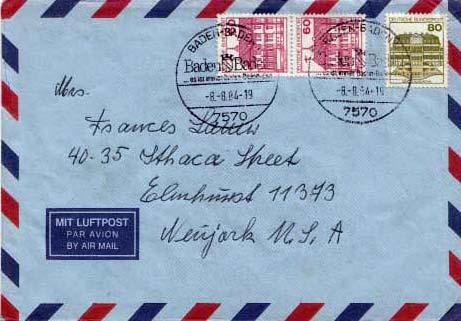 BADEN-BADEN
BADEN-BADEN
60
DEUTSCHE BUNDESPOST
80
Baden-Baden
-8.-8.84-19
-8.-8.84-19
7570
7570
Mrs.
Frances
40-35 Ithaca Street
Elmhurst 11373
Newjork U.S.A
MIT LUFTPOST
PAR AVION
BY AIR MAIL